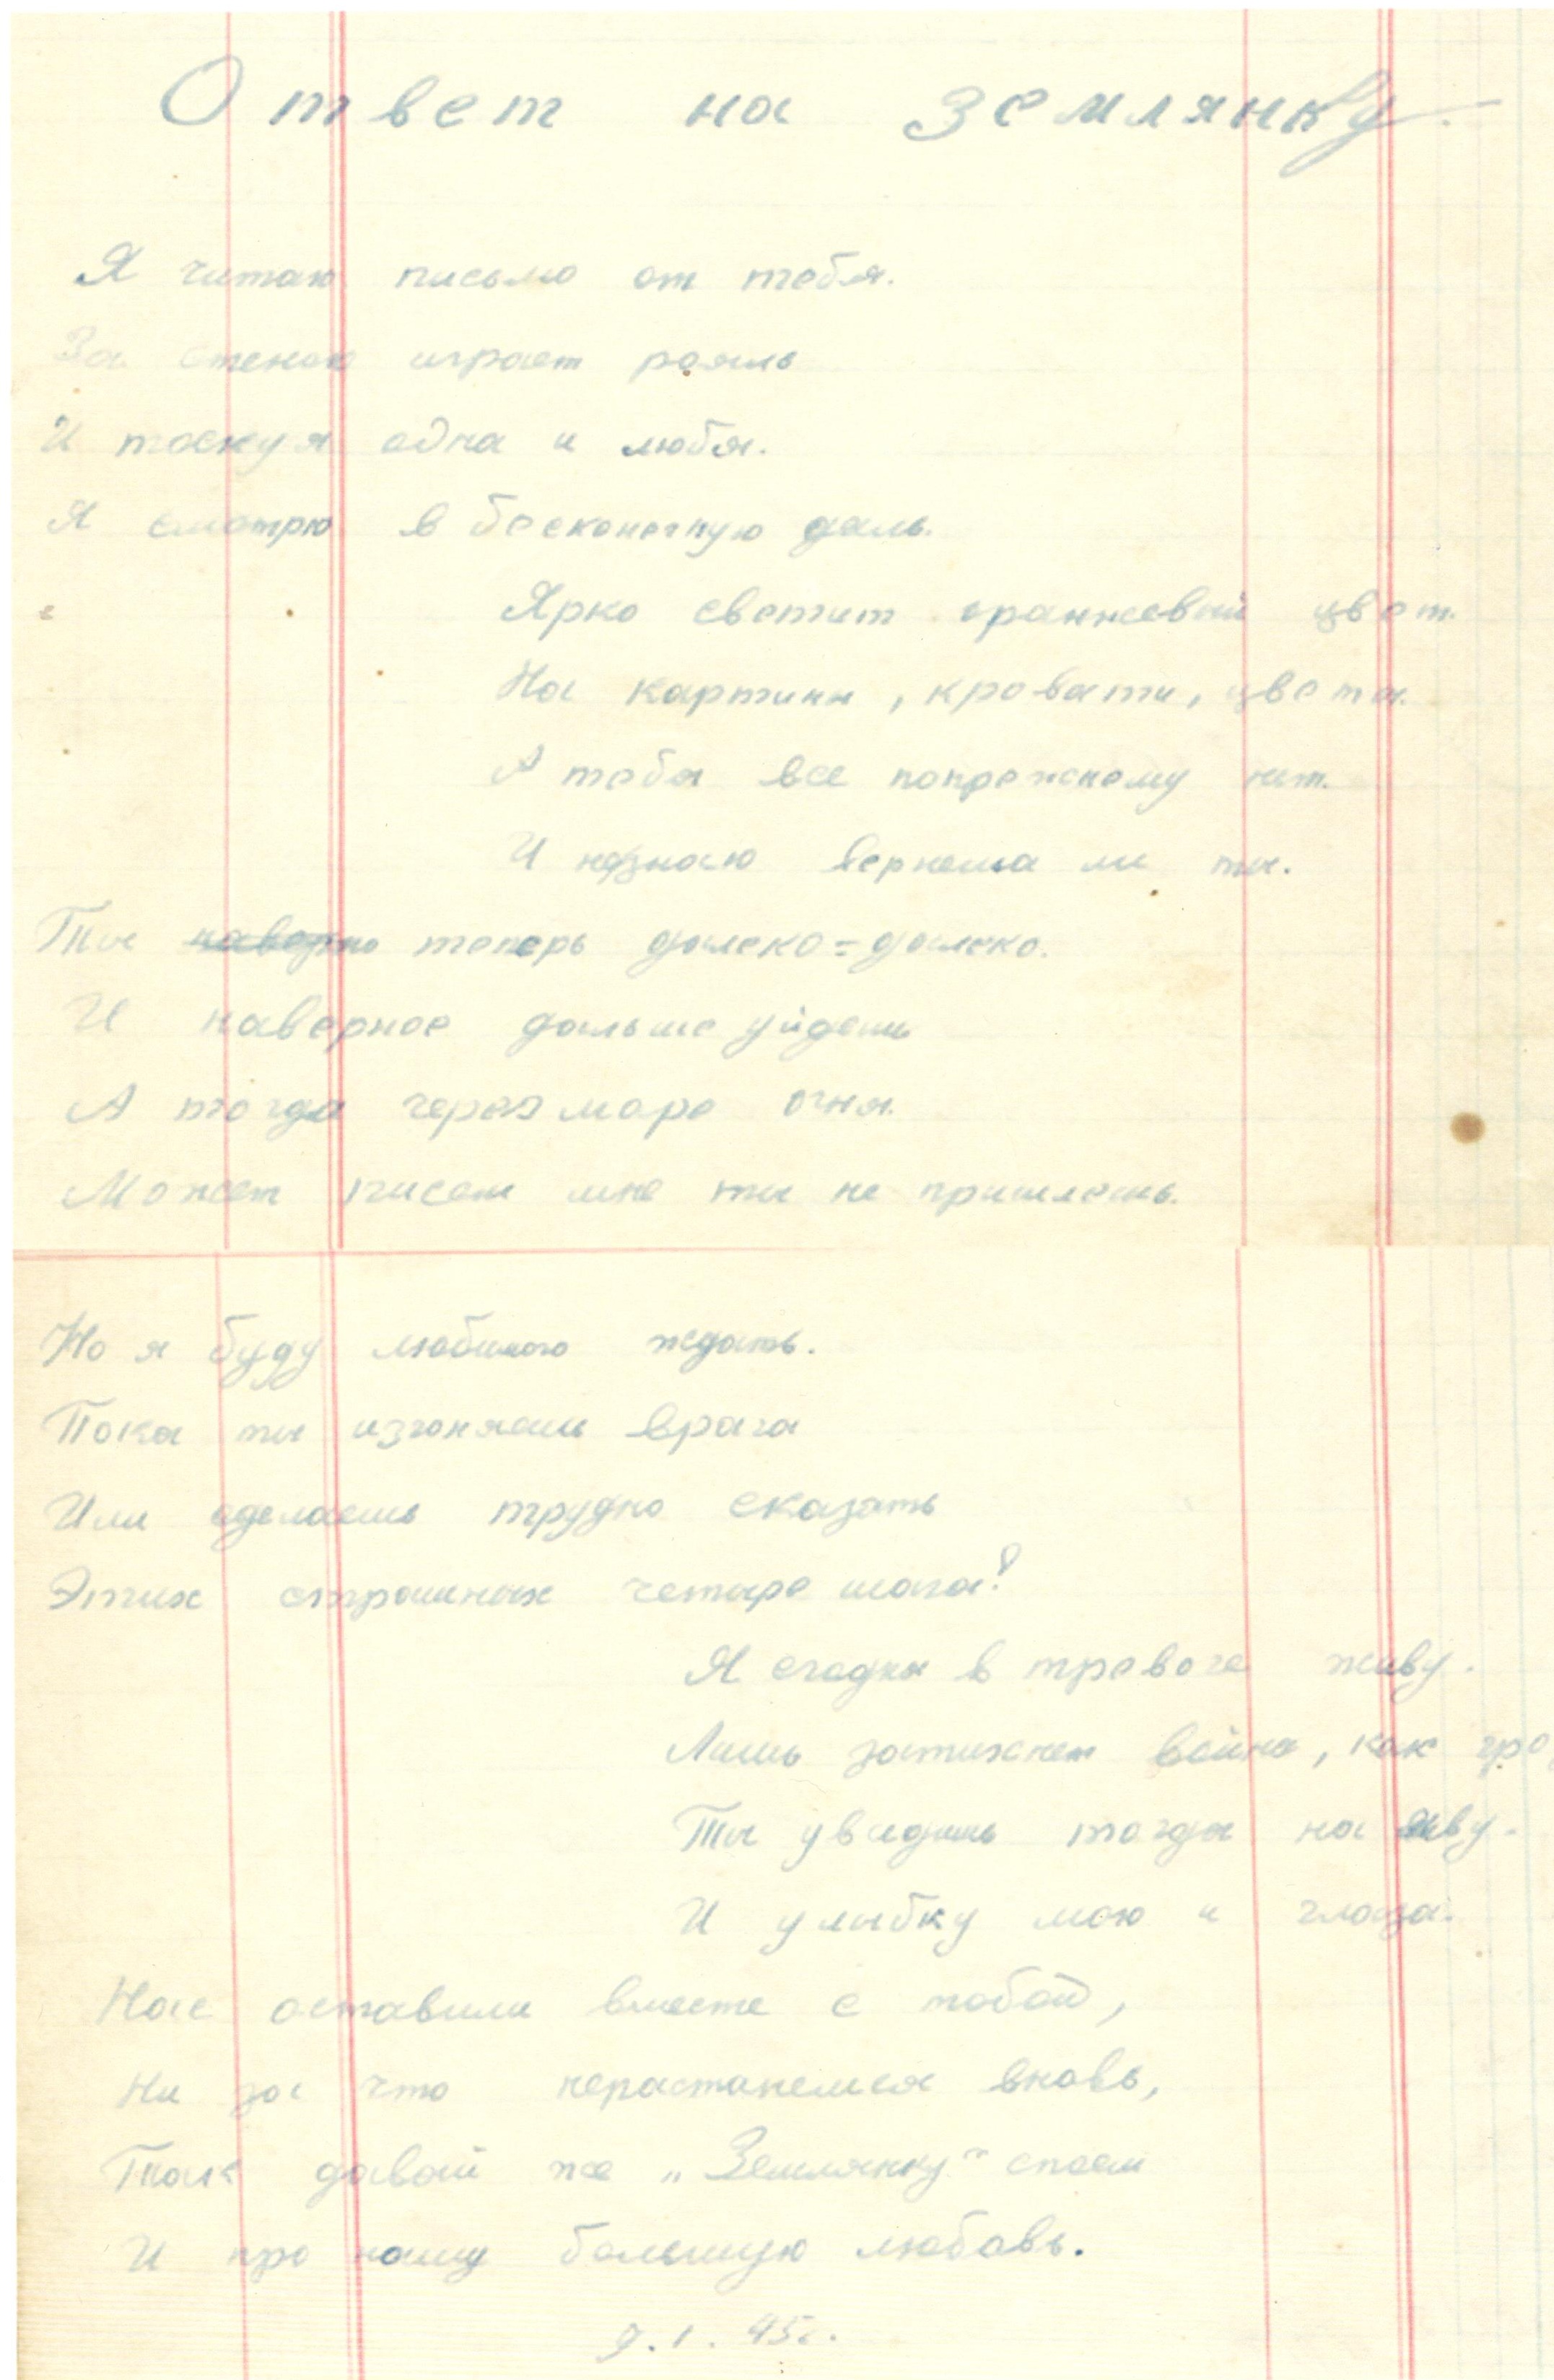 Ответ на Землянку.
Я читаю письмо от тебя.
За стеною играет рояль
И тоскуя одна и любя.
Я смотрю в бесконечную даль.
Ярко светит оранжевый цвет.
На картины, кровати, цветы.
А тебя все попрежнему нет.
И незнаю вернешся ли ты.
Ты наверно теперь далеко=далеко.
И наверное дальше уйдешь
А тогда через море огня.
Может писем мне ты не пришлешь.
Но я буду любимого ждать.
Пока ты изгоняешь врага
Или сделаешь трудно сказать
Этих страшных четыре шага?
Я сегодня в тревоге живу.
Лишь затихнет война, как гро
Ты увидишь тогда на яву.
И улыбку мою и глаза.
Нас оставили вместе с тобой,
Ни за что нерастанемся вновь,
Так давай же „Землянку" споем
И про нашу большую любовь.
9.1.45г.